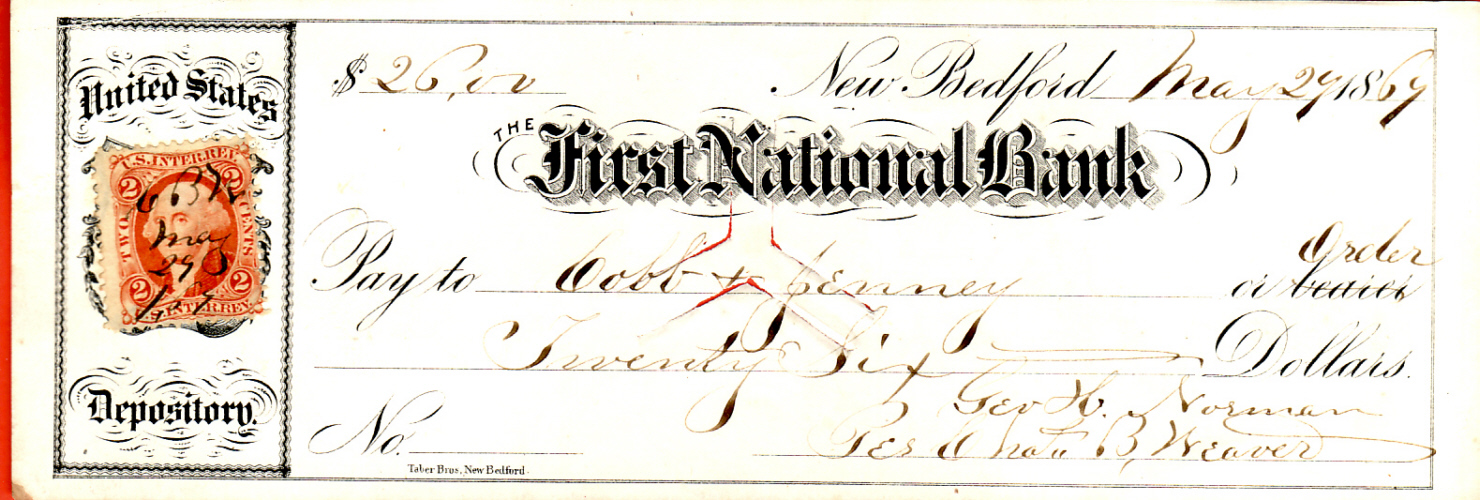 United States
U.S. INTER. REV.
2 2
C B W
TWO CENTS
May
29
2 2
U.S. INTER. REV.
Depository.
$ 26,00 New Bedford May 29 1867
THE
First National Bank
Order
Pay to Cobb & Jenney or bearer
Twenty Six Dollars.
Geo H. Norman
No. Per B, Weaver
Taber Bros, New Bedford.